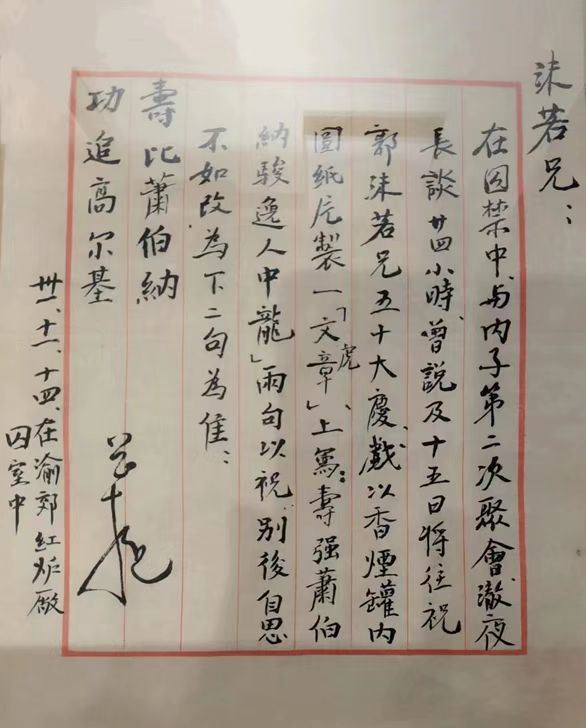 沫若兄：
在囚禁中、与内子第二次聚會、澈夜
長談廿四小時、曾說及十五日將往祝
郭沫若兄五十大慶、戲以香煙罐内
圓纸片製一「文虎章」、上寫：壽强蕭伯
納骏逸人中龍」兩句以祝、别後自思
不如改為下二句為佳：
壽比蕭伯納
功追高尔基
卅一、十一、十四、在渝郊红炉厰
囚室中